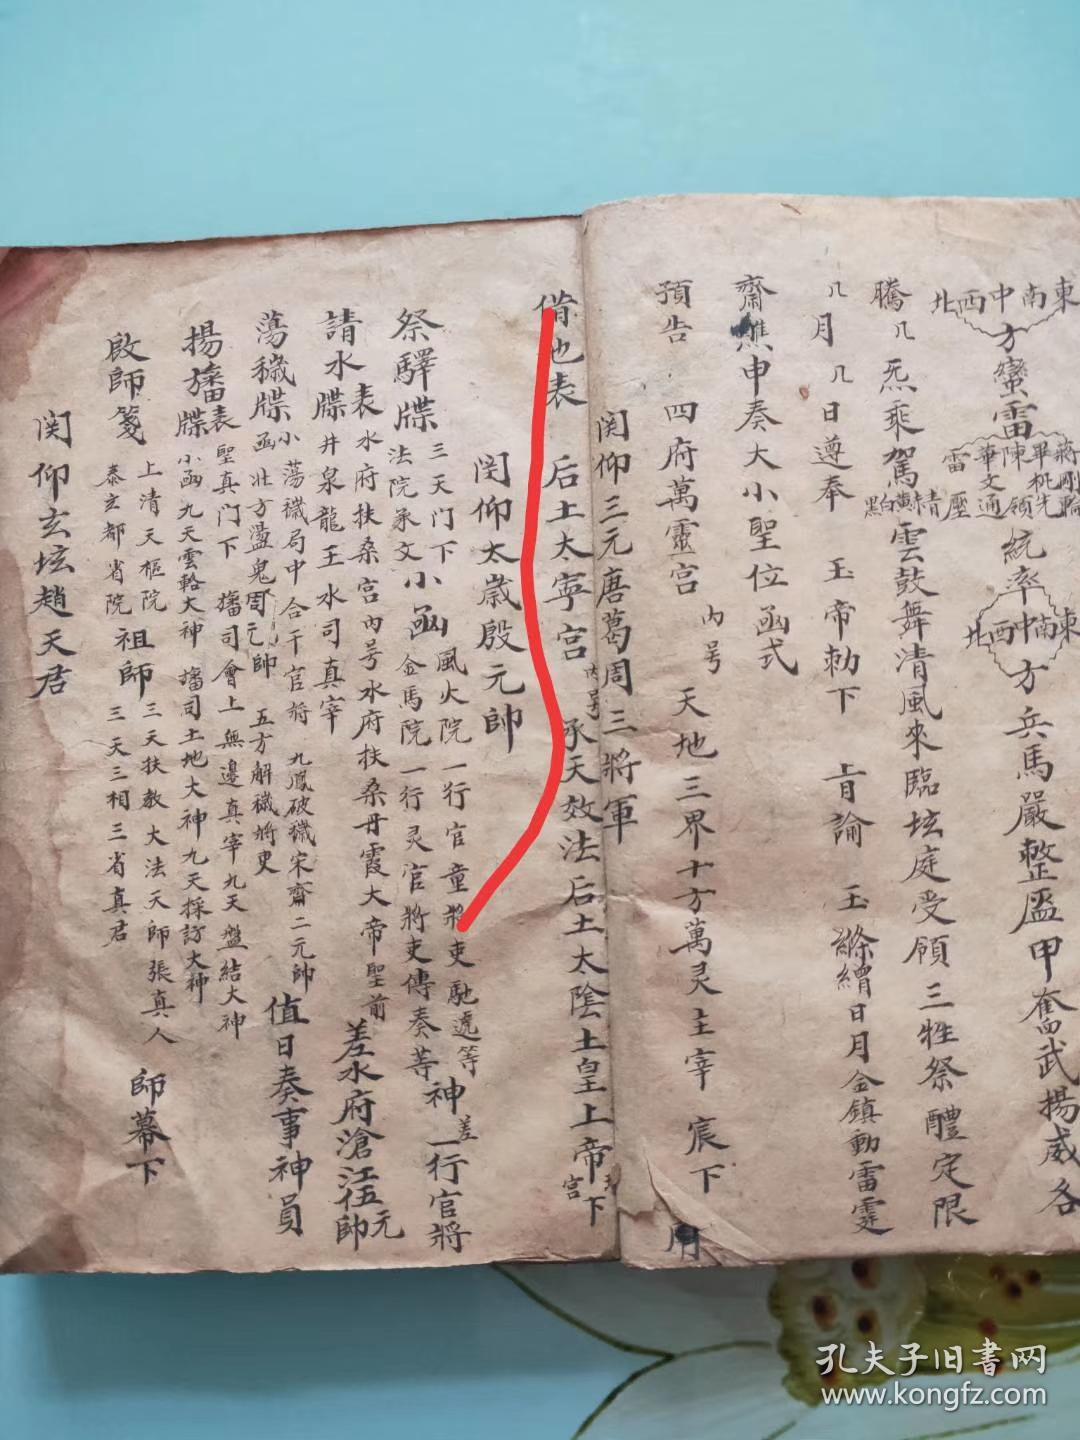 東南中西北
方蠻雷
蔣剛輪
畢機先
陳領
華文通
雷壓
統率
東南中西北
方兵馬嚴整盔甲奮武揚威各
騰〻炁乘駕
青赤黃白黑
雲鼓舞清風來臨坛庭受領三牲祭醴定限
〻月〻日遵奉 玉帝勅下 㫖諭 玉縧繒日月金鎮動雷霆
齋醮申奏大小聖位函式
預告 四府萬靈宮 內号 天地三界十方萬灵主宰 宸下
関仰三元唐葛周三將軍
借地表 后土太寧宮 內号 承天效法后土太陰土皇上帝 宮下
関仰太歲殷元帥
祭驛牒 三天门下 小函 風火院一行官童將吏馳遞等
法院承文 金馬院一行灵官將吏傳奏等 神 差一行官將
請水表 水府扶桑宮內号水府扶桑丹霞大帝聖前
牒 井泉龍王水司真宰 差水府滄江伍元帥
蕩穢牒 小蕩穢局中合干官將 九鳳破穢宋齋二元帥
函北方盪鬼周元帥 五方解穢將吏 值日奏事神員
揚旛表 聖真门下 旛司會上無邊真宰九天盤結大神
牒 小函九天雲輅大神 旛司土地大神九天採訪大神
啟師箋 上清天樞院 祖師 三天扶教大法天師張真人
泰玄都省院 三天三相三省真君 師幕下
関仰玄坛趙天君
孔夫子旧書网
www.kongfz.com